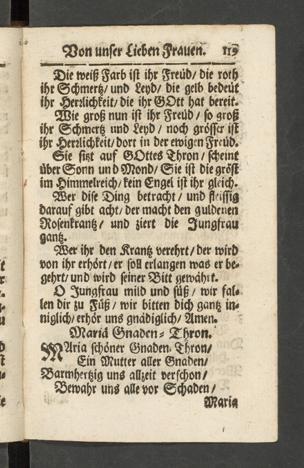 Von unser Lieben Frauen. 119
Die weiß Farb ist ihr Freüd/ die roth
ihr Schmertz/ und Leyd/ die gelb bedeüt
ihr Herrlichkeit/ die ihr GOtt hat bereit.
Wie groß nun ist ihr Freüd/ so groß
ihr Schmertz und Leyd/ noch grösser ist
ihr Herrlichkeit/ dort in der ewigen Freüd.
Sie sitzt auf GOttes Thron/ scheint
über Sonn und Mond/ Sie ist die gröst
im Himmelreich/ kein Engel ist ihr gleich.
Wer dise Ding betracht/ und fleissig
darauf gibt acht/ der macht den guldenen
Rosenkrantz/ und ziert die Jungfrau
gantz.
Wer ihr den Krantz verehrt/ der wird
von ihr erhört/ er soll erlangen was er be-
gehrt/ und wird seiner Bitt gewährt.
O Jungfrau mild und süß/ wir fal-
len dir zu Füß/ wir bitten dich gantz in-
niglich/ erhör uns gnädiglich/ Amen.
Mariä Gnaden-Thron.
MAria schöner Gnaden-Thron/
Ein Mutter aller Gnaden/
Barmhertzig uns allzeit verschon/
Bewahr uns alle vor Schaden/
Maria